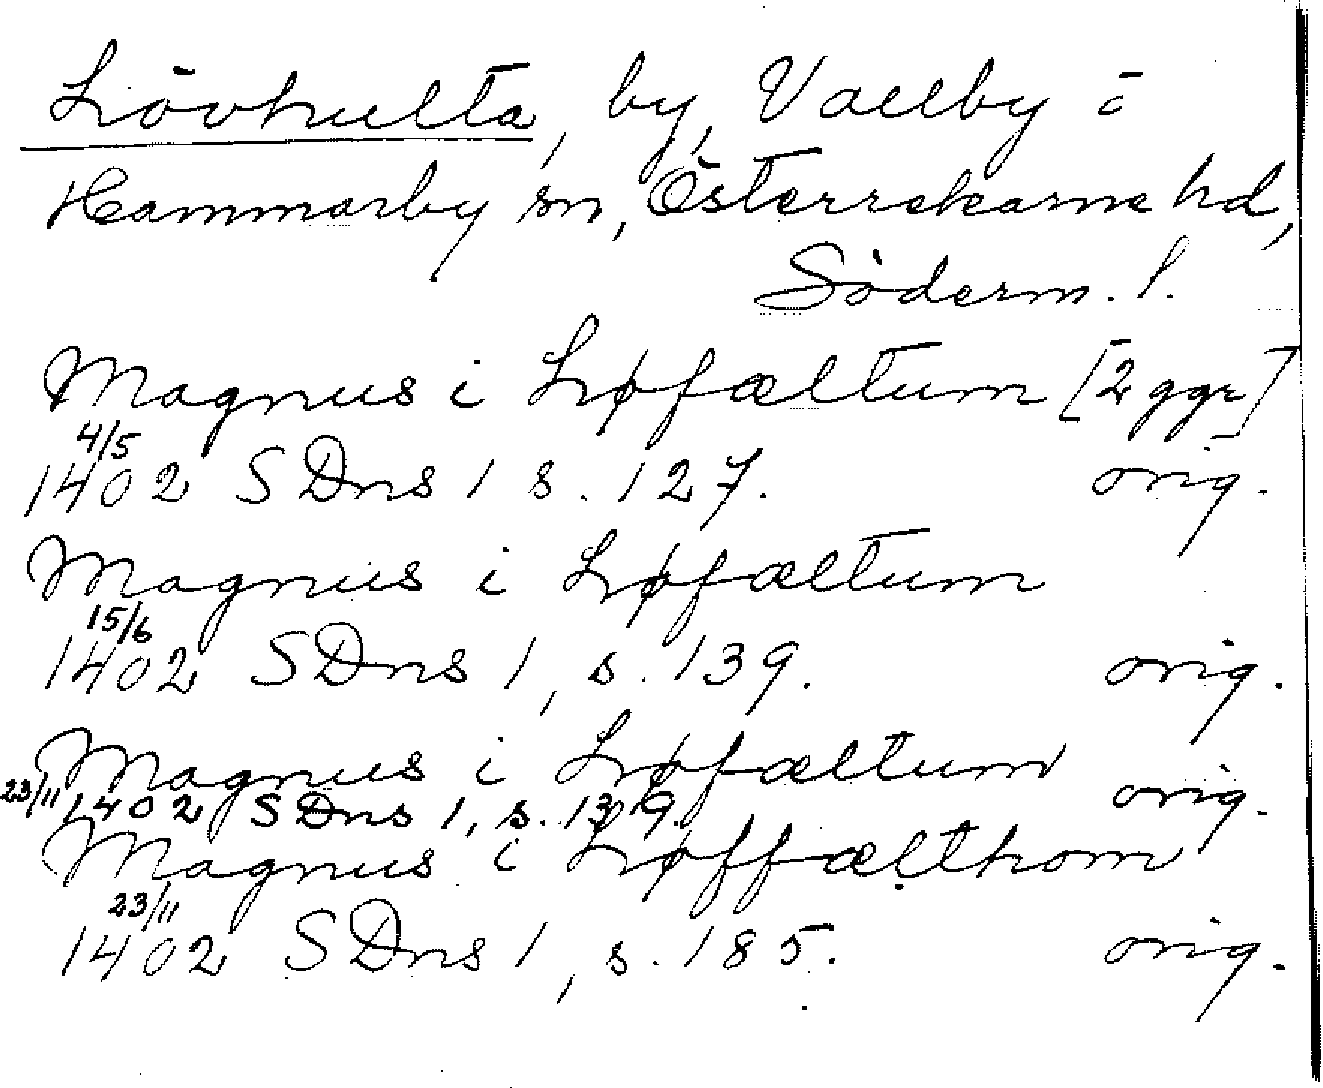 Lövhulta, by, Vallby i
Hammarby sn, Österrekarne hd,
Söderm. l.
Magnus i Løfæltum [2 ggr]
4/5
1402 SDns 1 s. 127. orig.
Magnus i Løfæltum
15/6
1402 SDns 1, s. 139. orig.
Magnus i Løfæltum
23/11 1402 SDns 1, s. 139. orig.
Magnus i Løffælthom
23/11
1402 SDns 1, s. 185. orig.